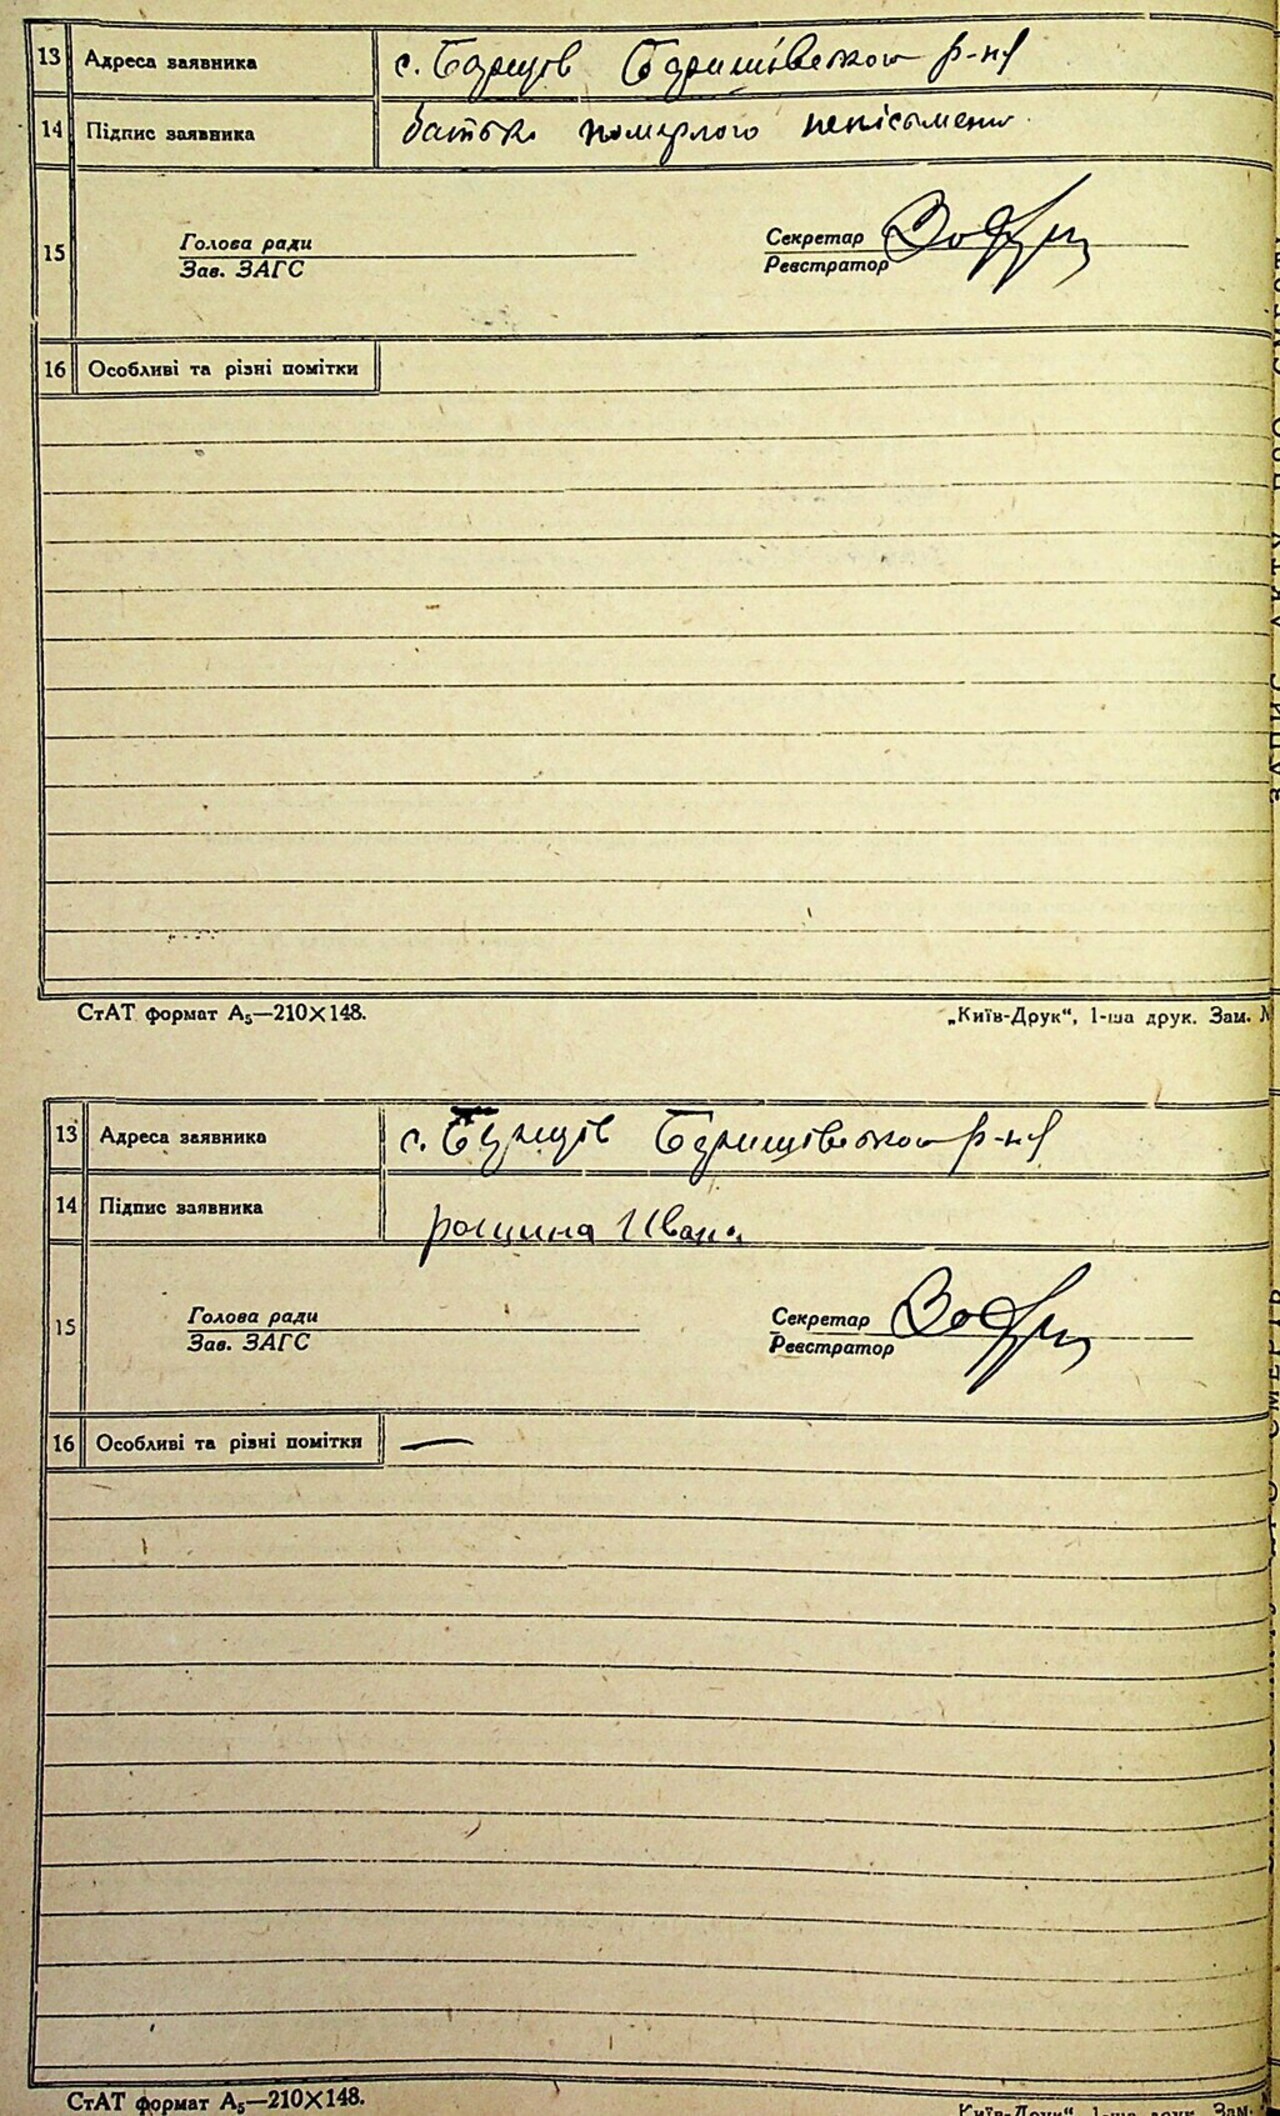 13 Адреса заявника с. Борщів Баришівського р-ну
14 Підпис заявника батько померлого неписьменн
15 Голова ради Секретар
Зав. ЗАГС Реєстратор
16 Особливі та різні помітки
СтАТ формат А₅—210×148. „Київ-Друк“, 1-ша друк. Зам. №
13 Адреса заявника с. Борщів Баришівського р-ну
14 Підпис заявника рощина Ивана
15 Голова ради Секретар
Зав. ЗАГС Реєстратор
16 Особливі та різні помітки —
СтАТ формат А₅—210×148. „Київ-Друк“, 1-ша друк. Зам. №